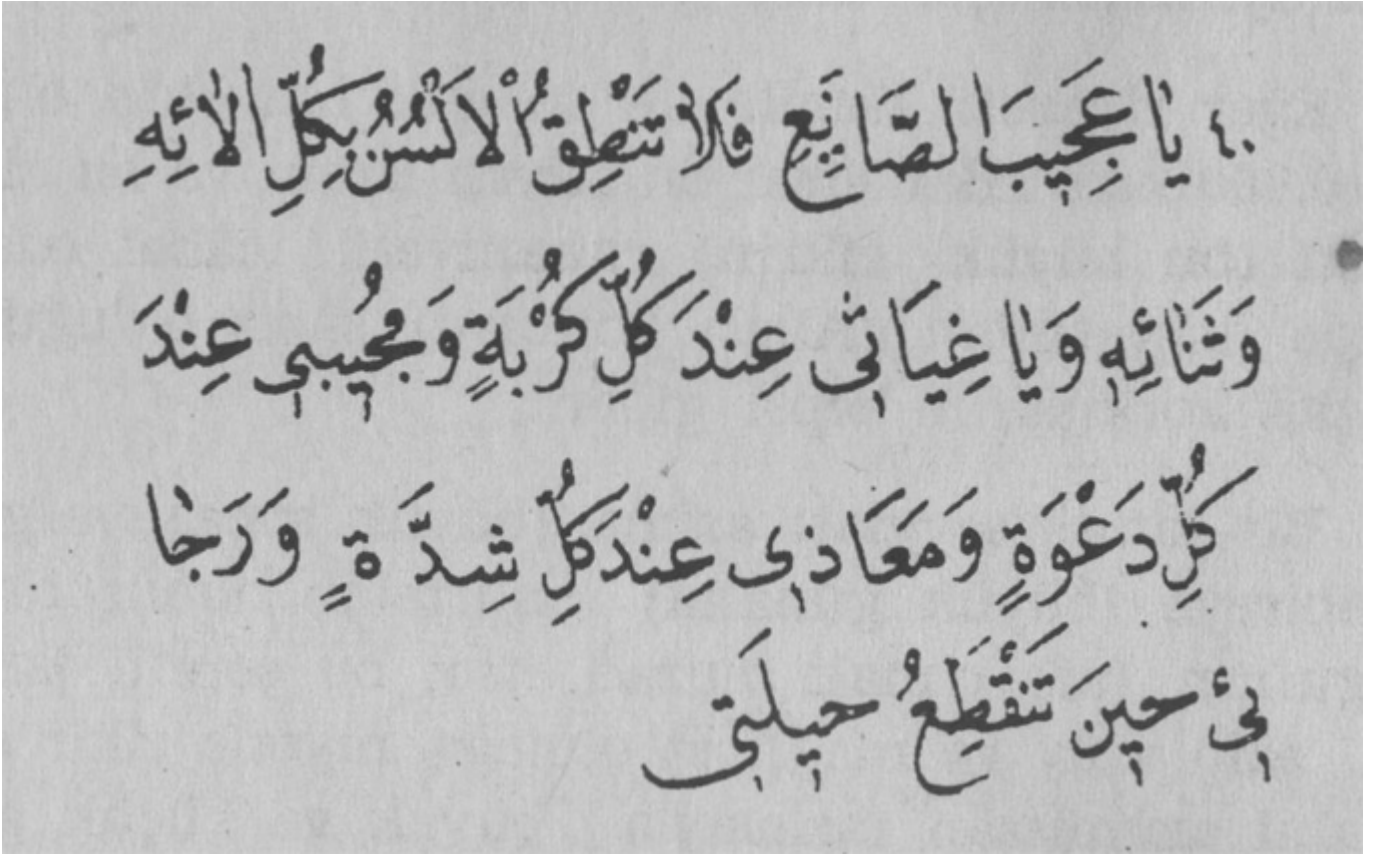 ٤٠ يَا عَجِيبَ الصَّانِعِ فَلَا تَنْطِقُ اْلاَلْسُنُ بِكُلِّ اٰلاٰئِهِ
وَثَنَائِهِ وَيَا غِيَاثِي عِنْدَ كُلِّ كُرْبَةٍ وَمُجِيبِي عِنْدَ
كُلِّ دَعْوَةٍ وَمَعَاذِي عِنْدَ كُلِّ شِدَّةٍ وَرَجَا
ئِي حِينَ تَنْقَطِعُ حِيلَتِي